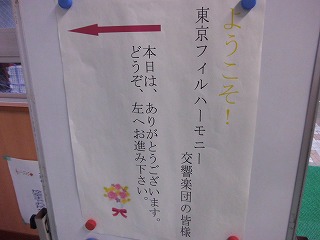 ようこそ！
東京フィルハーモニー
交響楽団の皆様
本日は、ありがとうございます。
どうぞ、左へお進み下さい。